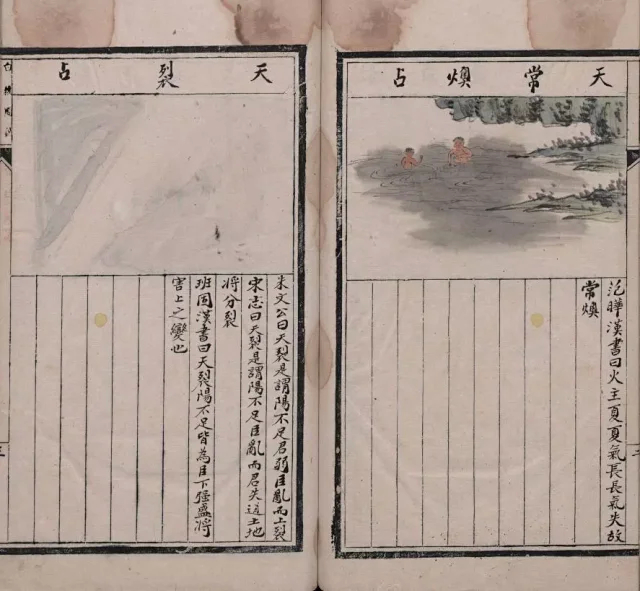 天常燠占
范曄漢書曰火主夏夏氣長長氣失故
常燠
天裂占
朱文公曰天裂是謂陽不足君弱臣亂而上裂
宋志曰天裂是謂陽不足臣亂而君失道土地
將分裂
班固漢書曰天裂陽不足皆為臣下強盛將
害上之變也
三